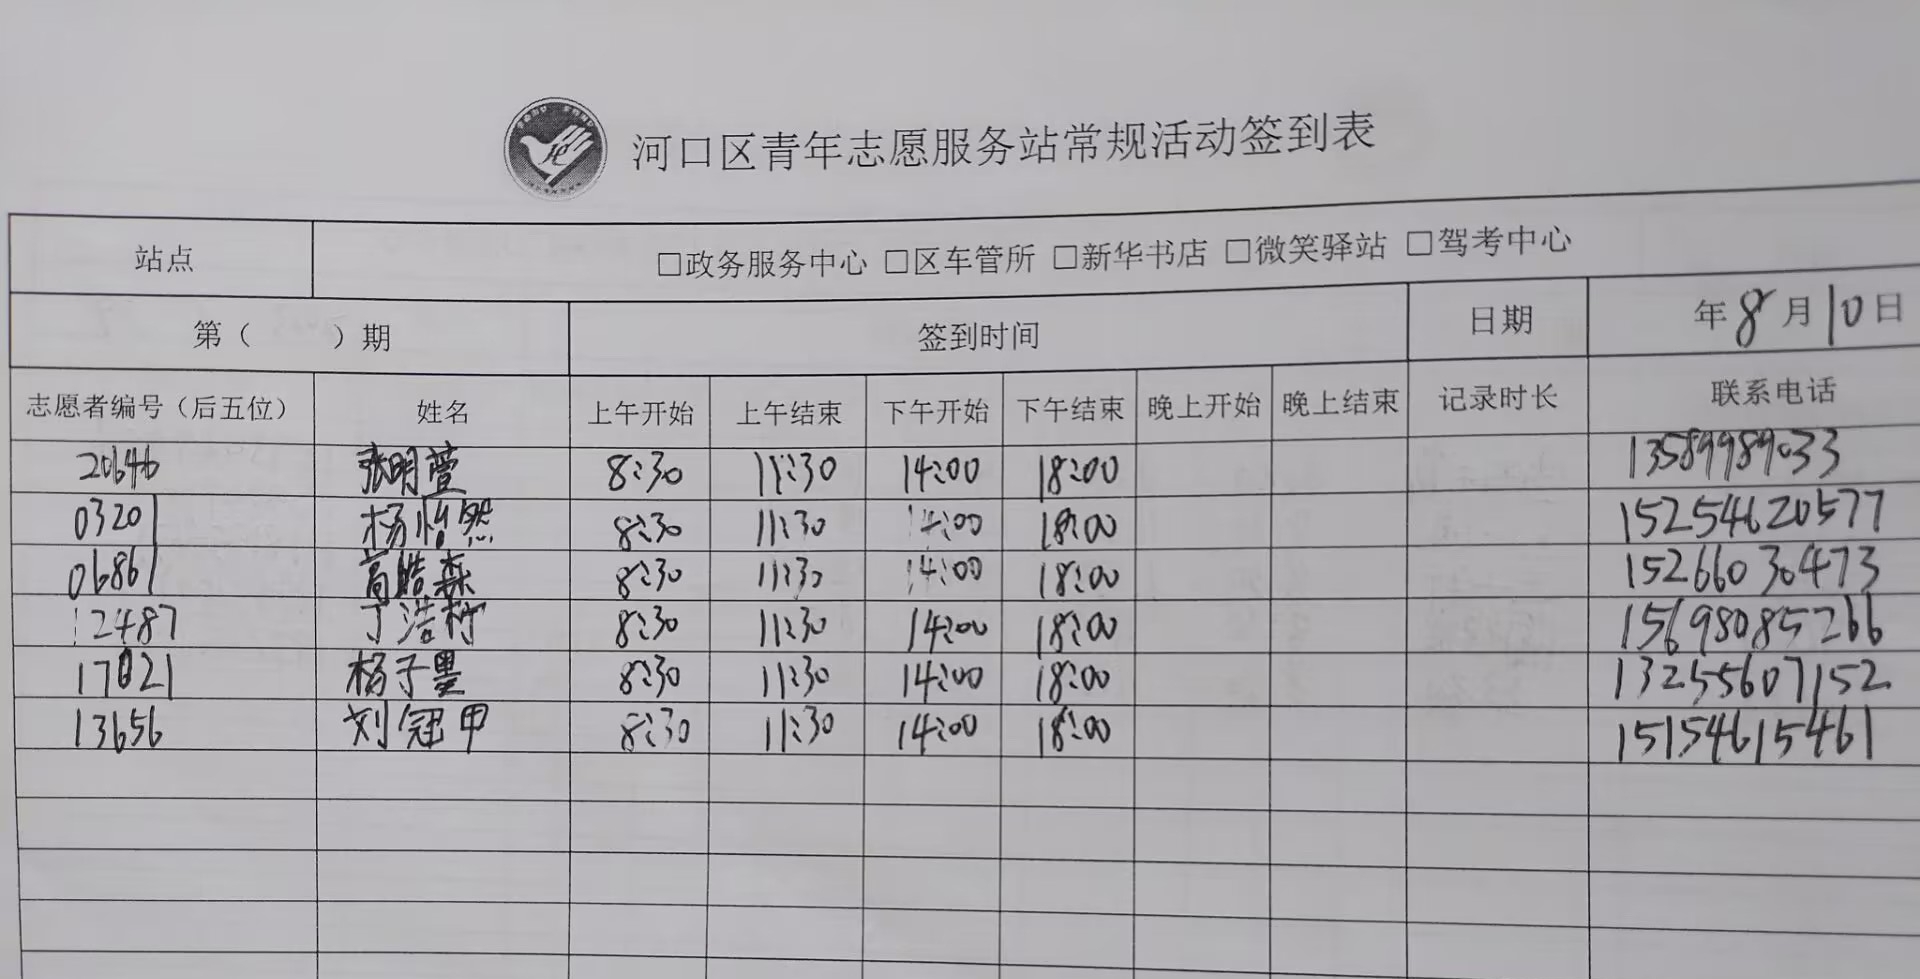 河口区青年志愿服务站常规活动签到表
站点 □政务服务中心 □区车管所 □新华书店 □微笑驿站 □驾考中心
第（ ）期 签到时间 日期 年8月10日
志愿者编号（后五位） 姓名 上午开始 上午结束 下午开始 下午结束 晚上开始 晚上结束 记录时长 联系电话
20646 张明萱 8:30 11:30 14:00 18:00 13589989033
03201 杨怡然 8:30 11:30 14:00 18:00 15254620577
06861 高皓森 8:30 11:30 14:00 18:00 15266030473
12487 丁浩 8:30 11:30 14:00 18:00 15698085266
17021 杨子墨 8:30 11:30 14:00 18:00 13255607152
13656 刘冠甲 8:30 11:30 14:00 18:00 15154615461